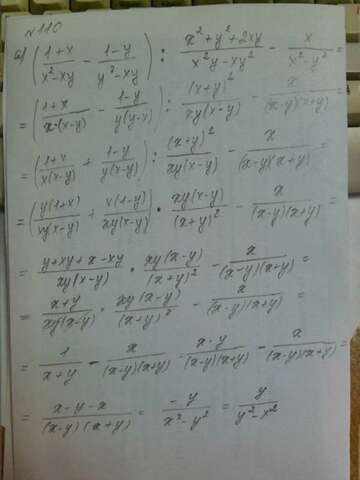 №110
а) ((1+x)/(x²-xy) - (1-y)/(y²-xy)) : (x²+y²+2xy)/(x²y-xy²) - x/(x²-y²) =
= ((1+x)/(x(x-y)) - (1-y)/(y(y-x))) : (x+y)²/(xy(x-y)) - x/((x-y)(x+y)) =
= ((1+x)/(x(x-y)) + (1-y)/(y(x-y))) : (x+y)²/(xy(x-y)) - x/((x-y)(x+y)) =
= (y(1+x)/(xy(x-y)) + x(1-y)/(xy(x-y))) · xy(x-y)/(x+y)² - x/((x-y)(x+y)) =
= (y+xy+x-xy)/(xy(x-y)) · xy(x-y)/(x+y)² - x/((x-y)(x+y)) =
= (x+y)/(xy(x-y)) · xy(x-y)/(x+y)² - x/((x-y)(x+y)) =
= 1/(x+y) - x/((x-y)(x+y)) = (x-y)/((x-y)(x+y)) - x/((x-y)(x+y)) =
= (x-y-x)/((x-y)(x+y)) = -y/(x²-y²) = y/(y²-x²)